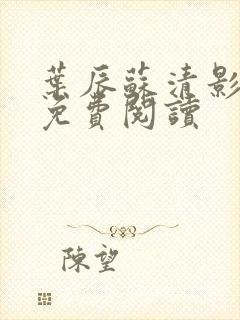 葉辰蘇清影
免費閱讀
陳望